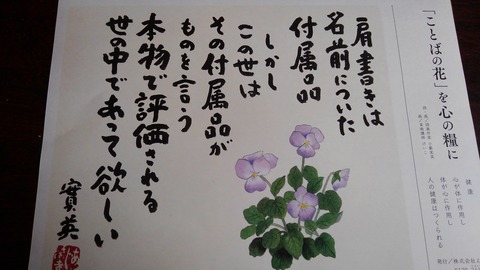 「ことばの花」を心の糧に
健康
心が体に作用し
体が心に作用し
人の健康はつくられる
発行/株式会社
肩書きは
名前についた
付属品
しかし
この世は
その付属品が
ものを言う
本物で評価される
世の中であって欲しい
實英